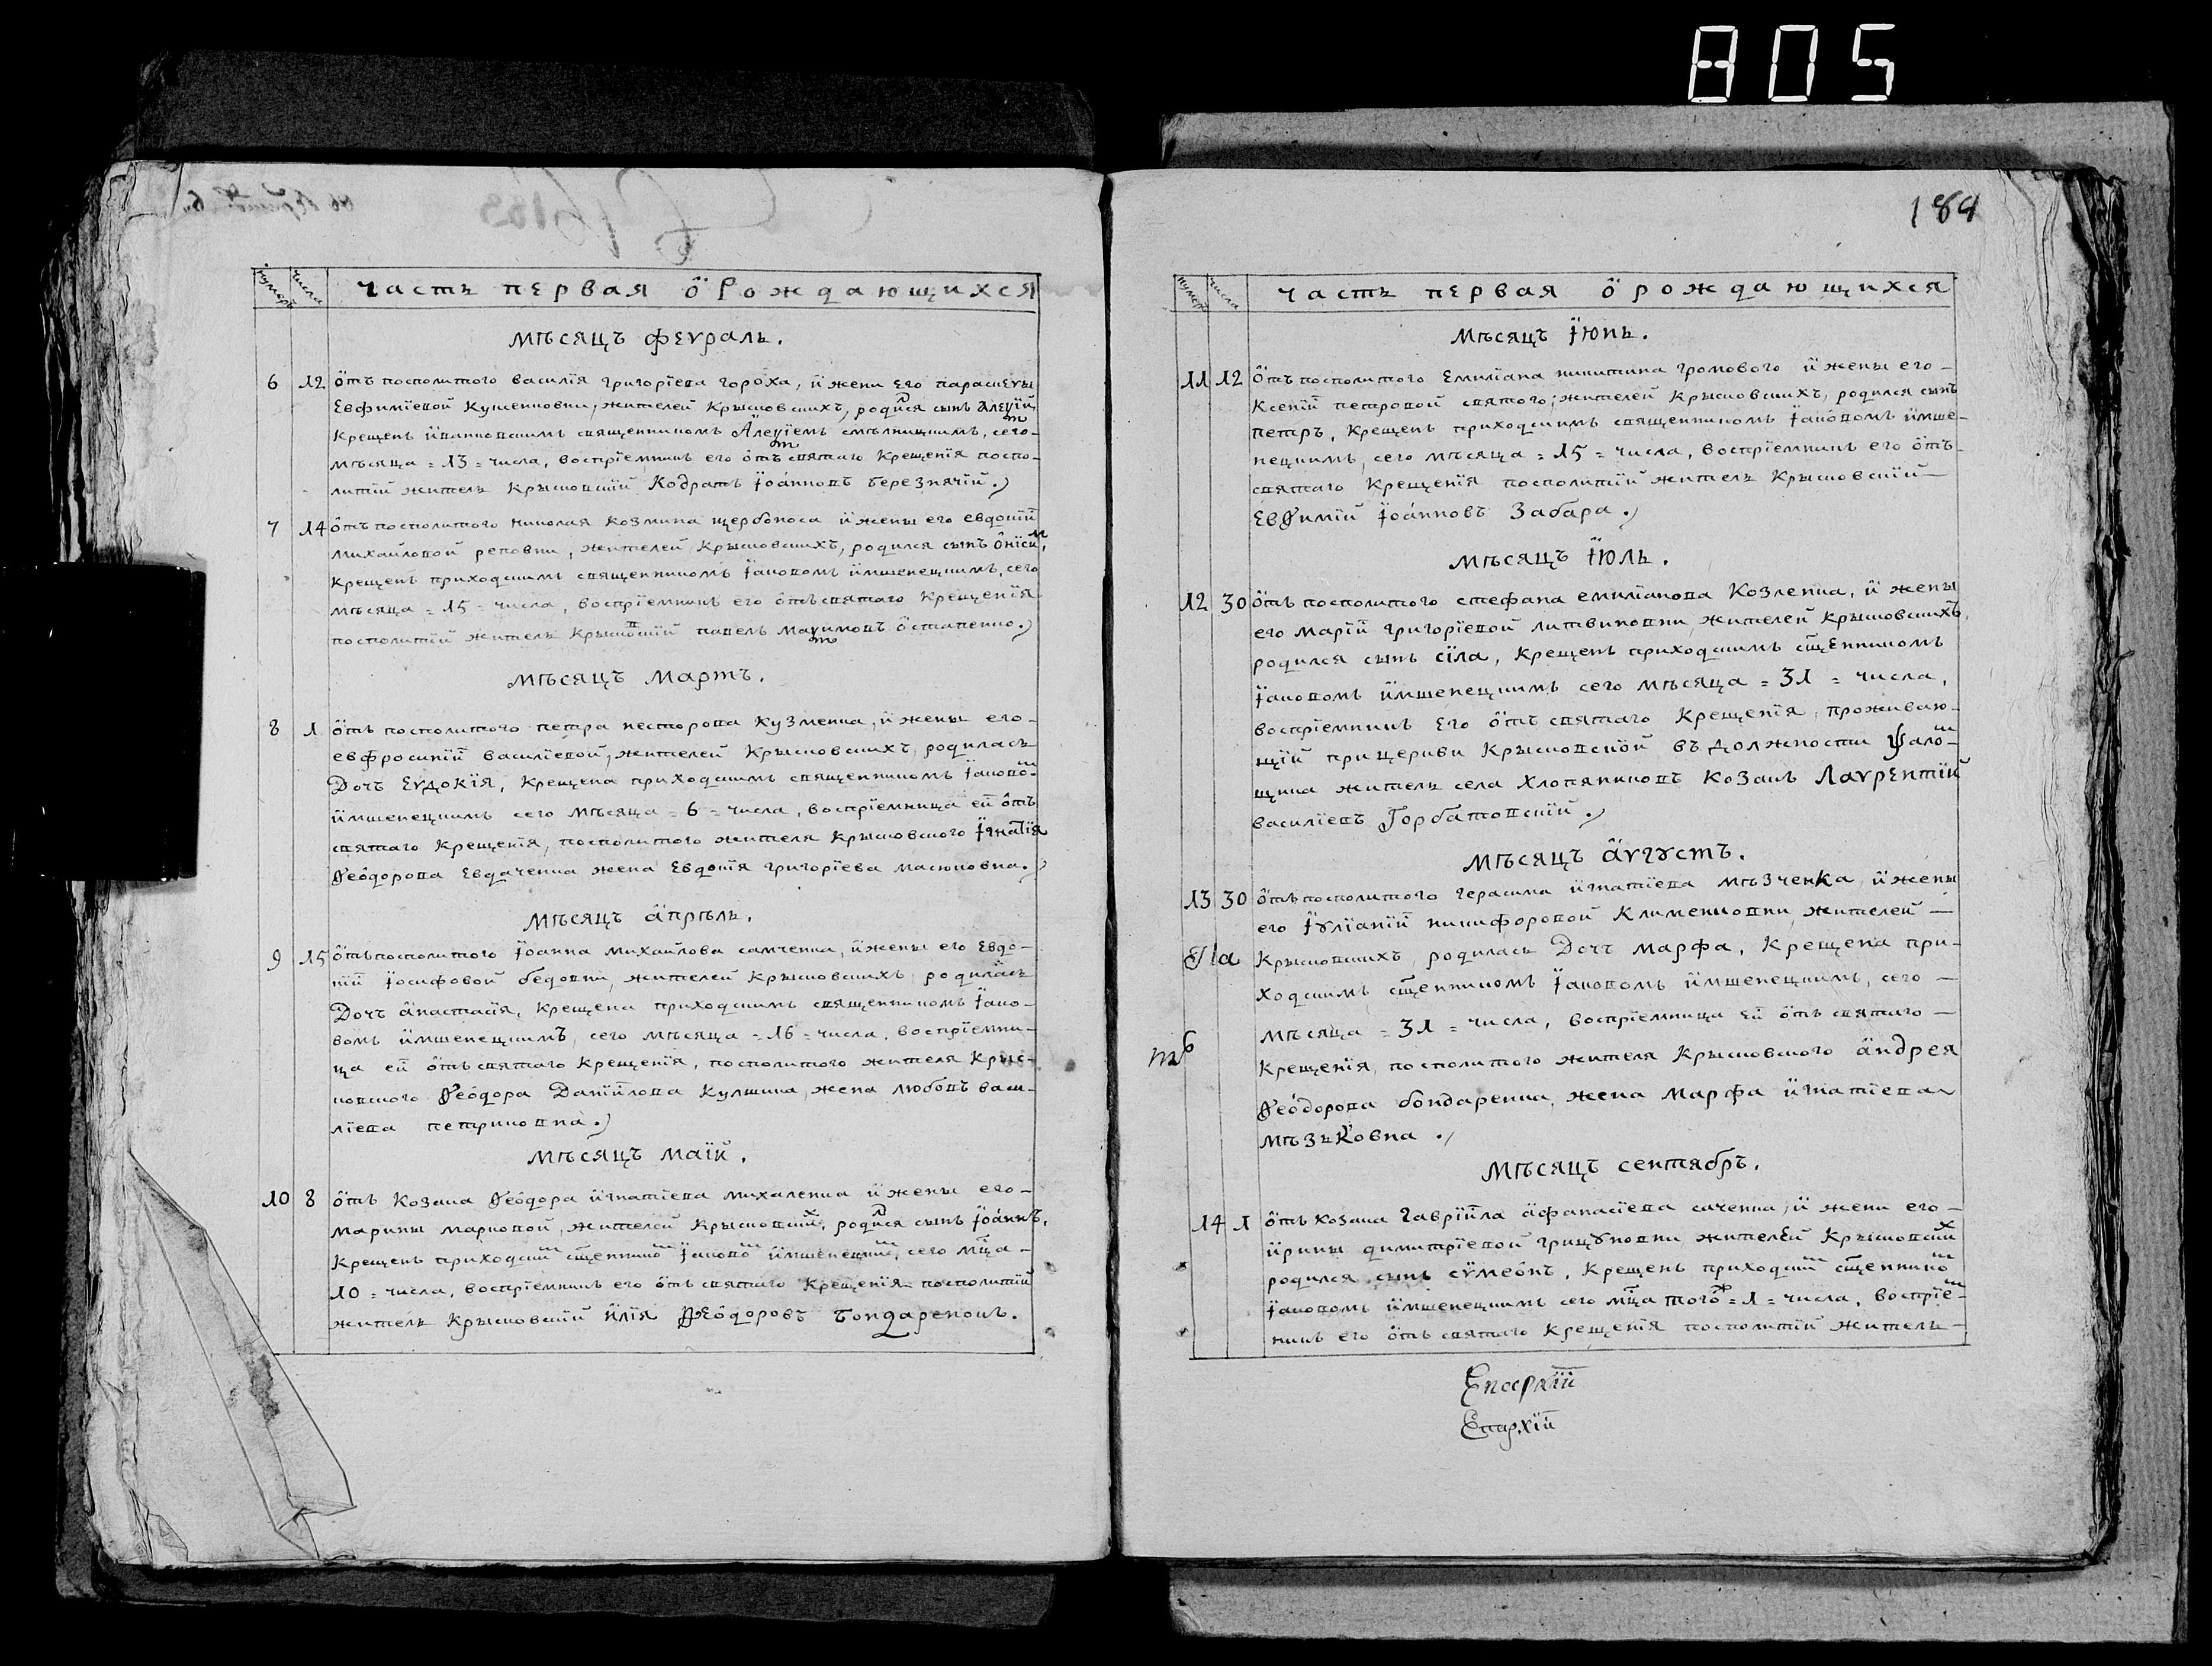 805
184
нумеръ числа часть первая ŏ рождающихся
мѣсяцъ феѵраль.
6 12 ŏтъ посполитого василїя григорїева гороха, и жени его параскеѵы
Евфимїевой Кушенковни, жителей Крысковскихъ, родился сынъ Алеѯїй,
Крещенъ священникомъ Алеѯїемъ сего-
мѣсяца = 13 = числа, воспрїемникъ его ŏтъ святаго Крещенїя поспо-
литїй житель Крысковскїй Кодратъ Їоанновъ Березнячїй.
7 14 ŏтъ посполитого николая козмина щербоноса и жены его евдокїи
михайловой реповни, жителей Крысковскихъ, родился сынъ Онїсим,
Крещенъ приходскимъ священникомъ Їаковомъ имшенецкимъ, сего
мѣсяца = 15 = числа, воспрїемникъ его ŏтъ святаго Крещенїя
посполитїй житель Крысковскїй павелъ Маѯимовъ Остапенко.
мѣсяцъ мартъ.
8 1 ŏтъ посполитого петра несторова Кузменка, и жены его-
евфросинїи василїевой, жителей Крысковскихъ, родилась
Дочъ Еѵдокїя, Крещена приходскимъ священникомъ Їаково-
имшенецкимъ сего мѣсяца = 6 = числа, воспрїемница ей ŏтъ
святаго Крещенїя, посполитого жителя Крысковского Їгнатїя
Ѳеодорова Евдаченка жена Евдокїя григорїева масюковна.
мѣсяцъ апрѣль.
9 15 ŏтъ посполитого Їоанна михайлова самченка, и жены его Евдо-
кїи Їосифовой бедовни, жителей Крысковскихъ, родилась
Дочъ анастасїя, Крещена приходскимъ священникомъ Їако-
вомъ имшенецкимъ, сего мѣсяца = 16 = числа, воспрїемни-
ца ей ŏтъ святаго Крещенїя, посполитого жителя Крыс-
ковского Ѳеодора Данїилова Кулшика, жена любовъ васи-
лїева петриковна.
мѣсяцъ маїй.
10 8 ŏтъ Козака Ѳеодора игнатїева михаленка и жены его-
марины марковой, жителей Крысковских, родился сынъ Їоаннъ,
Крещенъ приходским сщенником Їаковом имшенецким, сего мца-
10 = числа, воспрїемникъ его ŏтъ святаго Крещенїя посполитїй
житель Крысковскїй илїя Ѳеодоровъ Бондаренокъ.
нумеръ числа часть первая ŏ рождающихся
мѣсяцъ Їюнь.
11 12 Отъ посполитого Емилїана никитина громового и жены его-
Ксенїи петровой святого, жителей Крысковскихъ, родился сынъ
петръ, Крещенъ приходскимъ священникомъ Їаковомъ имше-
нецкимъ, сего мѣсяца = 15 = числа, воспрїемникъ его ŏтъ-
святаго Крещенїя посполитїй житель Крысковскїй-
ЕвѲимїй Їоанновъ Забара.
мѣсяцъ Їюль.
12 30 Отъ посполитого стефана емилїанова Козленка, и жены
его марїи григорїевой литвиновни, жителей Крысковскихъ,
родился сынъ сїла, Крещенъ приходскимъ сщенникомъ
Їаковомъ имшенецкимъ сего мѣсяца = 31 = числа,
воспрїемникъ Его ŏтъ святаго Крещенїя, проживаю-
щїй прицеркви Крысковской въ должности ѱалом-
щика житель села Хлопяниковъ Козакъ Лаѵрентїй
василїевъ Горбатовскїй.
мѣсяцъ аѵгустъ.
13 30 ŏтъ посполитого герасима игнатїева мѣзченка, и жены
его Їулїанїи никифоровой Клименковни, жителей —
Крысковскихъ, родилась Дочъ марфа, Крещена при-
ходскимъ сщенникомъ Їаковомъ имшенецкимъ, сего —
мѣсяца = 31 = числа, воспрїемница ей ŏтъ святаго —
Крещенїя, посполитого жителя Крысковского андрея
Ѳеодорова бондаренка, жена марфа игнатїева
мѣзьковна.
мѣсяцъ сентябръ.
14 1 ŏтъ козака Гаврїила афанасїева саченка, и жени его-
ирины димитрїевой грицуковни жителей Крысковских
родился сынъ сѵмеонъ, Крещенъ приходским сщенником
Їаковомъ имшенецкимъ сего мца того ж = 1 = числа, воспрїем-
никъ его ŏтъ святаго Крещенїя посполитїй житель-
Епархїи